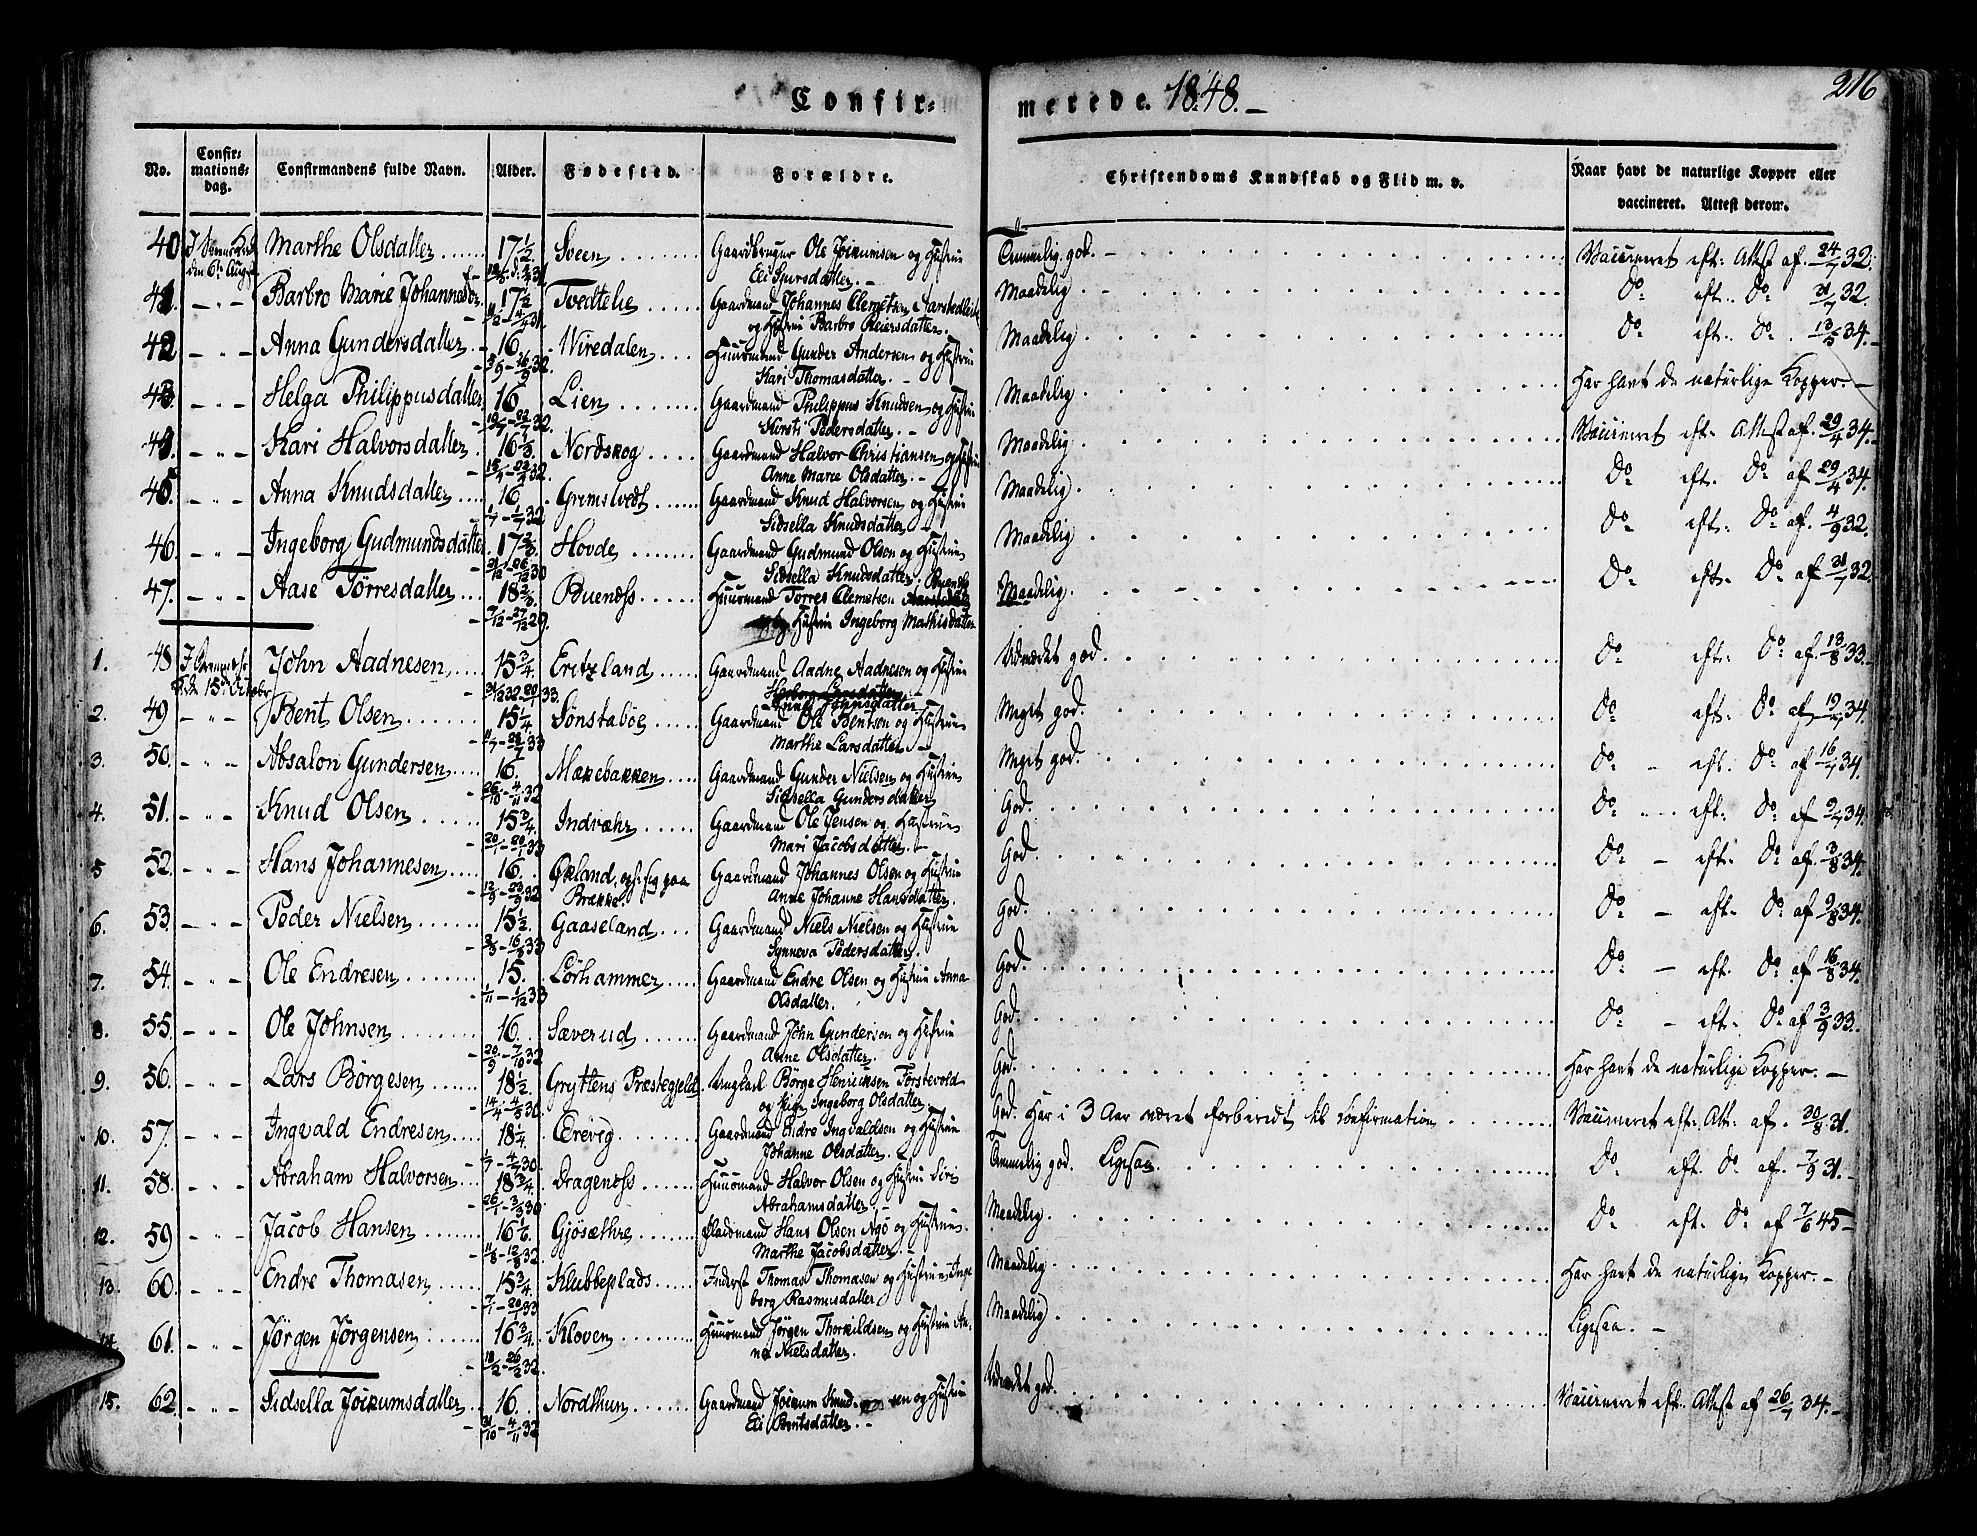 Confir- merede. 1848. -
216
No.
Confir-
mations-
dag.
Confirmandens fulde Navn.
Alder.
Fødested.
Forældre.
Christendoms Kundskab og Flid m. v.
Naar havt de naturlige Kopper eller
vaccineret. Attest derom.
40 Marthe Olsdatter 17 1/2 Sveen Gaardbruger Ole og Hustru Temmelig god. Vaccineret eft: Attest af 24/7 32.
den 6te August
Eli
41 Barbro Marie Johannesdtr 17 1/2 Tvedtelie Gaardmand Johannes Clemetsen Maadelig Do eft. Do 31/7 32.
og Hustru Barbro Reiersdatter. -
42 - " - Anna Gundersdatter 16 Wiredalen Huusmand Gunder Andersen og Hustru Maadelig Do eft. Do 13/8 34.
Kari Thomasdatter. -
43 - " - Helga Philippusdatter 16 Lien Gaardmand Philippus Knudsen og Hustru Maadelig Har havt de naturlige Kopper. -
Kirsti Pedersdatter. -
44. - " - Kari Halvorsdatter 16 1/3 Nordskog Gaardmand Halvor Christiansen og Hustru Maadelig Vaccineret eft: Attest af 29/4 34.
Anne Marie Olsdatter. -
45. - " - Anna Knudsdatter 16 Grimstvedt Gaardmand Knud Halvorsen og Hustru Maadelig Do eft. Do af 29/4 34.
1/7 - 1/7 32 Sidsella Knudsdatter. -
46. - " - Ingeborg Gudmundsdatter 17 2/3 Hovde Gaardmand Gudmund Olsen og Hustru Maadelig Do eft: Do af 4/9 32.
21/12 - 26/12 30 Sidsella Knudsdatter.
47. - " - Aase Tørresdatter 18 2/3 Buenæss Huusmand Torres Clemetsen Maadelig. Do eft. Do af 31/7 32.
7/12 - 27/12 29. og Hustru Ingeborg Mathisdatter
1. 48 John Aadnesen 15 3/4 Eritzland Gaardmand Aadne Aadnesen og Hustru Udmærket god. Do eft: Do af 13/8 33.
den 15de October
2. 49 - " - Bent Olsen 15 1/4 Sønstabøe Gaardmand Ole Bentsen og Hustru Meget god. Do eft. Do af 19/7 34.
Marthe Larsdatter. -
3. 50. - " - Absalon Gundersen 16. Mækebakken Gaardmand Gunder Nielsen og Hustru Meget god. Do - eft. Do af 16/7 34.
26/10 - 4/11 32 Sidsella Gundersdatter
4. 51. - " - Knud Olsen 15 3/4 Indvæhr Gaardmand Ole Jensen og Hustrue God. Do eft: Do af 9/7 34.
20/1 - 20/1 33 Mari Jacobsdatter. -
5 52. - " - Hans Johannesen 16. Økland, Gaardmand Johannes Olsen og Hustru God. Do - eft: Do af 3/8 34.
12/9 - 23/9 32 Brække. Anne Johanne Hansdatter.
6. 53. - " - Peder Nielsen 15 1/2 Gaaseland Gaardmand Niels Nielsen og Hustru God. Do - eft. Do af 9/8 34.
Synneva Pedersdatter.
7. 54. - " - Ole Endresen 15. Lørhammer Gaardmand Endre Olsen og Hustru Anna God. Do - eft. Do af 16/8 34.
1/11 - 1/12 33 Olsdatter.
8. 55. - " - Ole Johnsen 16. Sæverud Gaardmand John Gundersen og Hustru God. Do - eft: Do af 3/9 33.
20/9 - 7/10 32 Anne Olsdatter.
9. 56. - " - Lars Børgesen 18 1/2 Gryttens Præstegjeld. Ungkarl Børge Henriksen Førstevold God. Har havt de naturlige Kopper. -
14/4 - 4/8 30. og Pige Ingeborg Olsdatter.
10. 57. - " - Ingvald Endresen 18 1/4 Eerevig Gaardmand Endre Ingvaldsen og Hustru God. Har i 3 Aar været forberedt til Confirmation Vaccineret eft. Att: af 30/8 31.
1/7 - 4/7 30. Johanne Olsdatter.
11. 58. - " - Abraham Halvorsen 18 3/4 Dragenæss Huusmand Halvor Olsen og Hustru Siri Temmelig god. Ligesaa. Do eft. Do af 7/9 31. -
26/1 - 3/3 30 Abrahamsdatter. -
12. 59 - " - Jacob Hansen 16 1/6 Gjøsæthre Pladsmand Hans Olsen Agø og Hustrue. Maadelig. Do eft. Do af 7/6 45 -
11/8 - 12/8 32. Marthe Jacobsdatter. -
13. 60. - " - Endre Thomasen 15 3/4 Klubbeplads Inderst Thomas Thomasen og Hustrue Inge Maadelig. Har havt de naturlige Kopper. -
7/1 - 20/1 33 borg Rasmusdatter
14. 61. - " - Jørgen Jørgensen 16 3/4 Kloven Huusmand Jørgen Thorkildsen og Hustru An- Maadelig Ligesaa. -
18/2 - 26/2 32. ne Nielsdatter.
15. 62. - " - Sidsella Joikumsdatter 16. Nordthun Gaardmand Joikum Knud- sen og Hustru Udmærket god. Vaccineret eft. Attest af 26/7 34. -
31/10 - 4/11 32 Eli Bentsdatter. -